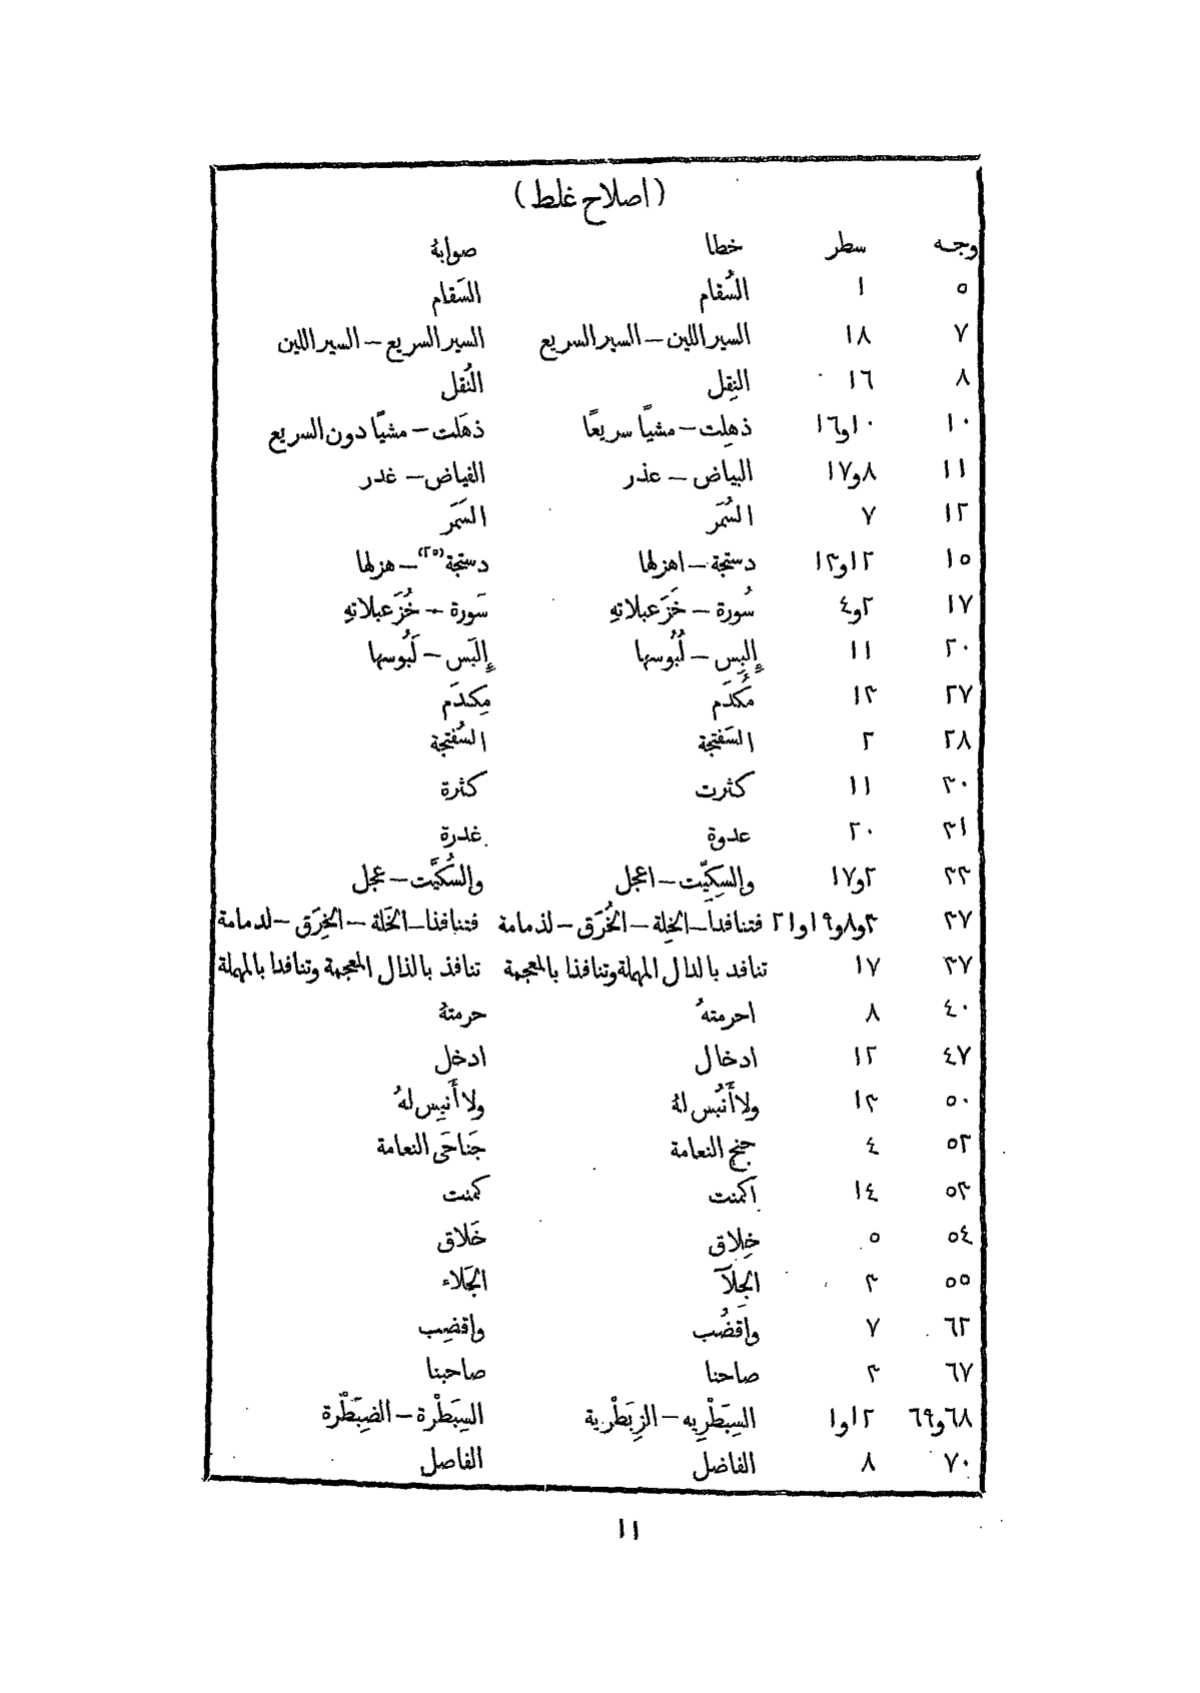 (اصلاح غلط)
وجه سطر خطا صوابهُ
٥ ١ السُقام السَقام
٧ ١٨ السير اللين – السير السريع السير السريع – السير اللين
٨ ١٦ النِقل النُقل
١٠ ١٠و١٦ ذهِلت – مشيًا سريعًا ذهَلت – مشيًا دون السريع
١١ ٨و١٧ البياض – عذر الفياض – غدر
١٢ ٧ السُمَر السَمَر
١٥ ١٢و١٣ دستجة – اهزلها دستجة (٢٥) – هزلها
١٧ ٢و٤ سُورة – خَزَعبلاتهِ سَورة – خُزَعبلاتهِ
٢٠ ١١ إِلبِس – لُبُوسها إِلبَس – لَبُوسها
٢٧ ١٣ مُكدَم مِكدَم
٢٨ ٢ السَفتجة السُفتجة
٣٠ ١١ كثرت كثرة
٣١ ٢٠ عدوة غدرة
٣٣ ٢و١٧ والسِكِيّت – اعجل والسُكَيَّت – عجل
٣٧ ٣و٨و١٩و٢١ فتنافدا – الخِلة – الخُرَق – لذمامة فتنافذا – الخَلة – الخِرَق – لدمامة
٣٧ ١٧ تنافد بالدال المهملة وتنافذا بالمعجمة تنافذ بالذال المعجمة وتنافدا بالمهملة
٤٠ ٨ احرمتهُ حرمتهُ
٤٧ ١٢ ادخال ادخل
٥٠ ١٣ ولا أَنبُس لهُ ولا أَنبِس لهُ
٥٢ ٤ جنح النعامة جَناحَي النعامة
٥٣ ١٤ اكمنت كمنت
٥٤ ٥ خِلاق خَلاق
٥٥ ٣ الجِلآ الجَلاء
٦٢ ٧ واقضُب واقضِب
٦٧ ٣ صاحنا صاحبنا
٦٨و٦٩ ١٢و١ السِبَطْريه – الزِبَطْرية السِبَطْرة – الضِبَطْرة
٧٠ ٨ الفاضل الفاصل
١١